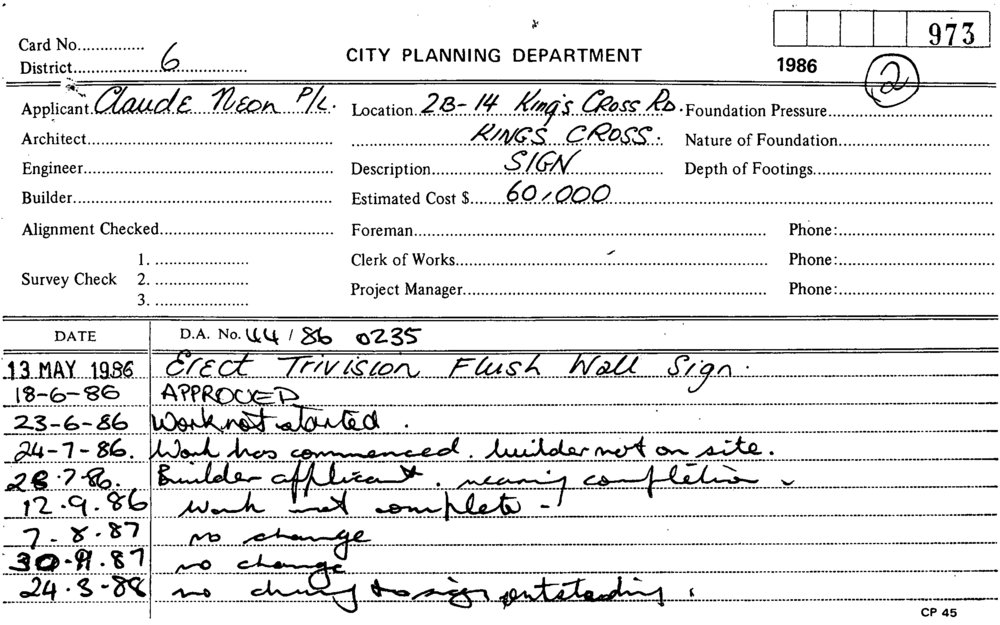 973
Card No...............
CITY PLANNING DEPARTMENT
District 6
1986
2
Applicant Claude Neon P/L. Location 2B-14 King's Cross Rd. Foundation Pressure
Architect KINGS CROSS. Nature of Foundation
Engineer Description SIGN Depth of Footings
Builder Estimated Cost $ 60,000
Alignment Checked Foreman Phone:
1. Clerk of Works Phone:
Survey Check 2.
3. Project Manager Phone:
DATE D.A. No. 44/86 0235
13 MAY 1986 Erect Trivision Flush Wall Sign.
18-6-86 APPROVED
23-6-86 Work not started.
24-7-86. Work has commenced. builder not on site.
28.7.86. Builder applicant. nearing completion.
12.9.86 work not complete -
7-8-87 no change
30.9.87 no change
24.3.88 no to sign outstanding.
CP 45